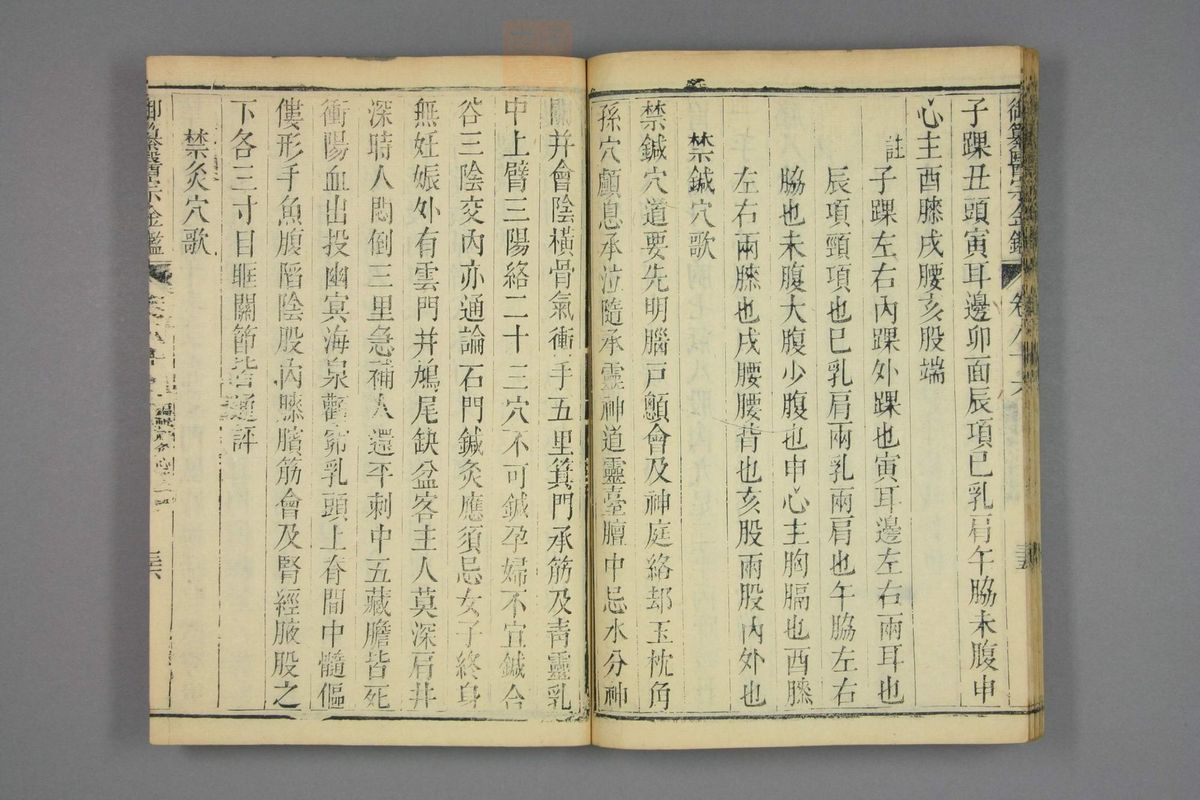 御纂醫宗金鑑 卷八十六 三五
子踝丑頭寅耳邊卯面辰項巳乳肩午脇未腹申
心主酉膝戌腰亥股端
註
子踝左右內踝外踝也寅耳邊左右兩耳也
辰項頸項也巳乳肩兩乳兩肩也午脇左右
脇也未腹大腹少腹也申心主胸膈也酉膝
左右兩膝也戌腰腰背也亥股兩股內外也
禁鍼穴歌
禁鍼穴道要先明腦戶顖會及神庭絡却玉枕角
孫穴顱息承泣隨承靈神道靈臺膻中忌水分神
闕并會陰橫骨氣衝手五里箕門承筋及青靈乳
中上臂三陽絡二十三穴不可鍼孕婦不宜鍼合
谷三陰交內亦通論石門鍼灸應須忌女子終身
無妊娠外有雲門并鳩尾缺盆客主人莫深肩井
深時人悶倒三里急補人還平刺中五藏膽皆死
衝陽血出投幽冥海泉顴窌乳頭上脊間中髓傴
僂形手魚腹陷陰股內膝臏筋會及腎經腋股之
下各三寸目眶關節皆通評
禁灸穴歌
御纂醫宗金鑑 三六